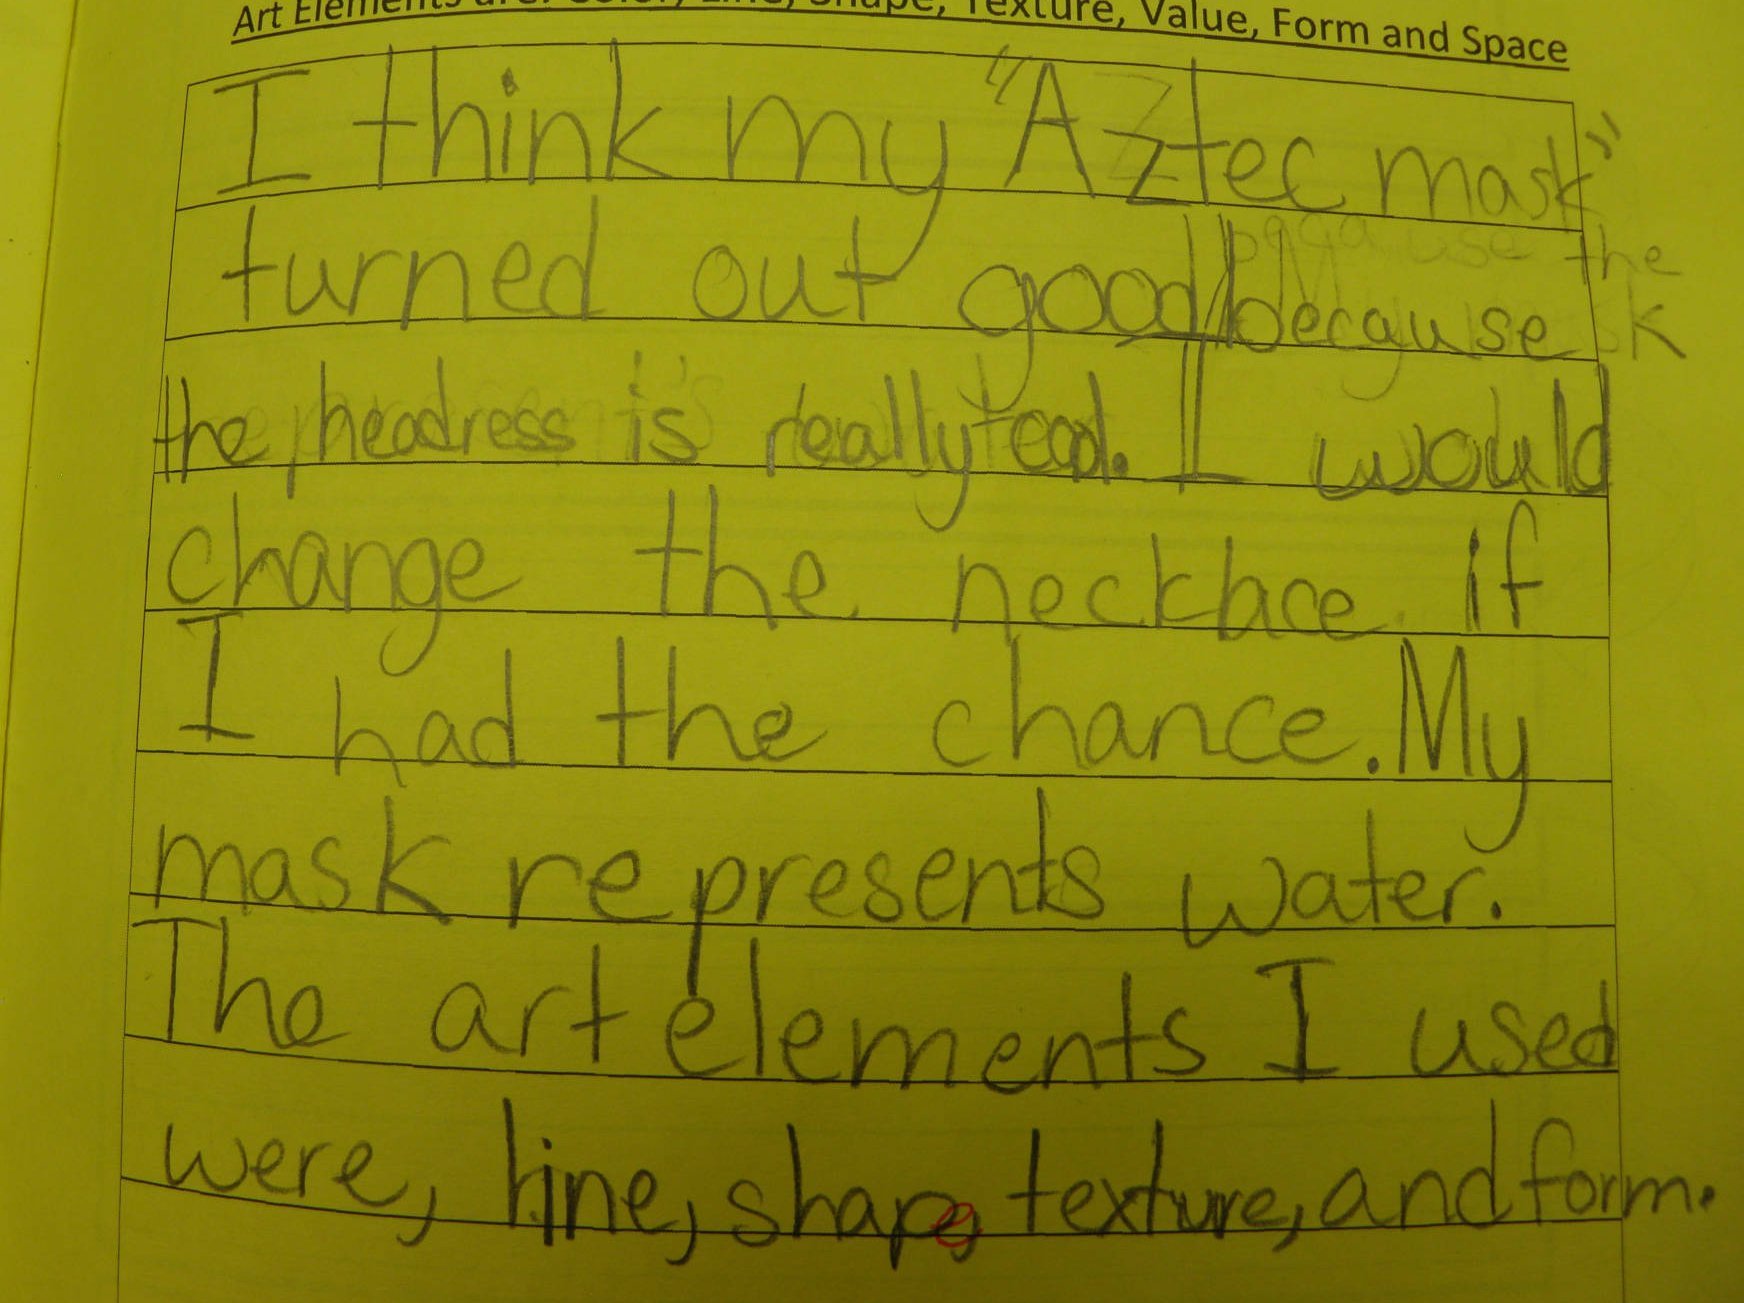 Art Elements are: Color, Line, Shape, Texture, Value, Form and Space
I think my "Aztec mask"
turned out good because
the headress is really cool. I would
change the necklace if
I had the chance. My
mask represents water.
The art elements I used
were, line, shape, texture, and form.